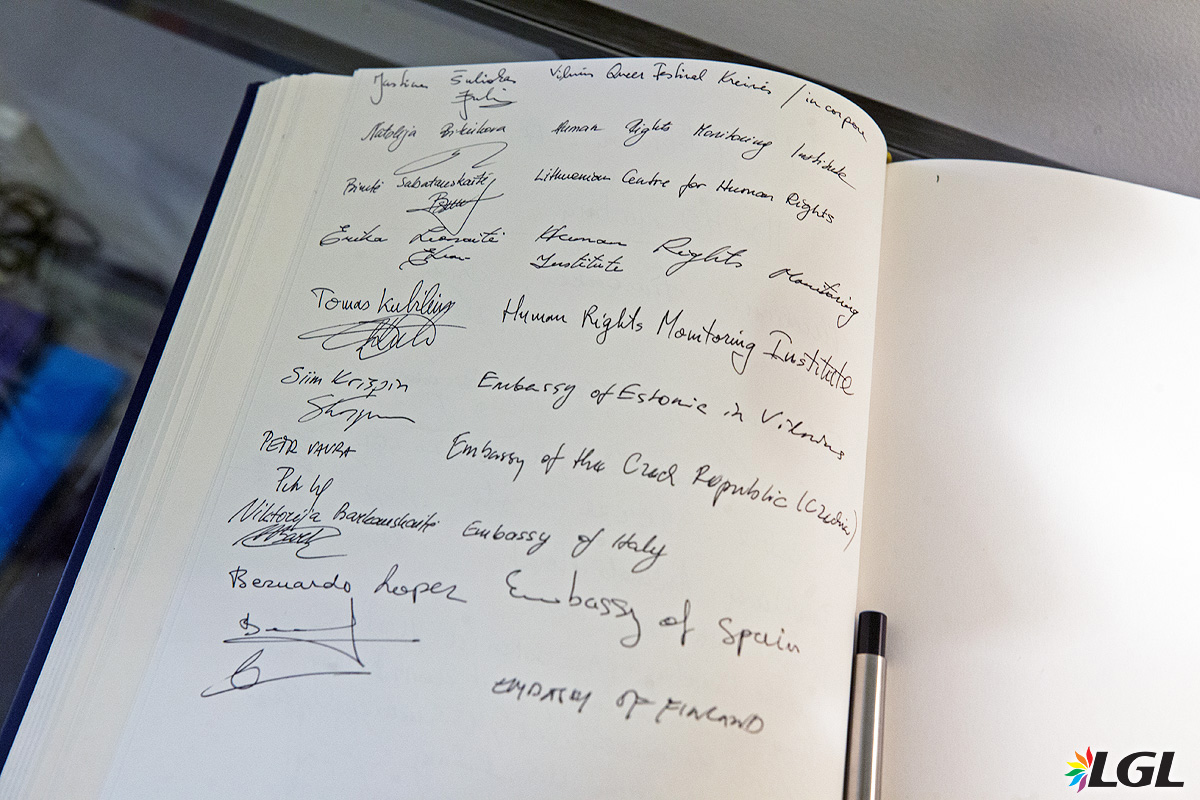 Justinas Šuliokas Vilnius Queer Festival Kreivės / in corpore
Natalija Bitiukova Human Rights Monitoring Institute
Birutė Sabatauskaitė Lithuanian Centre for Human Rights
Erika Leonaitė Human Rights Monitoring
Institute
Tomas Kubilius Human Rights Monitoring Institute
Siim Krispin Embassy of Estonia in Vilnius
PETR VAVRA Embassy of the Czech Republic (Czechia)
Viktorija Barkauskaitė Embassy of Italy
Bernardo Lopez Embassy of Spain
EMBASSY OF FINLAND
LGL